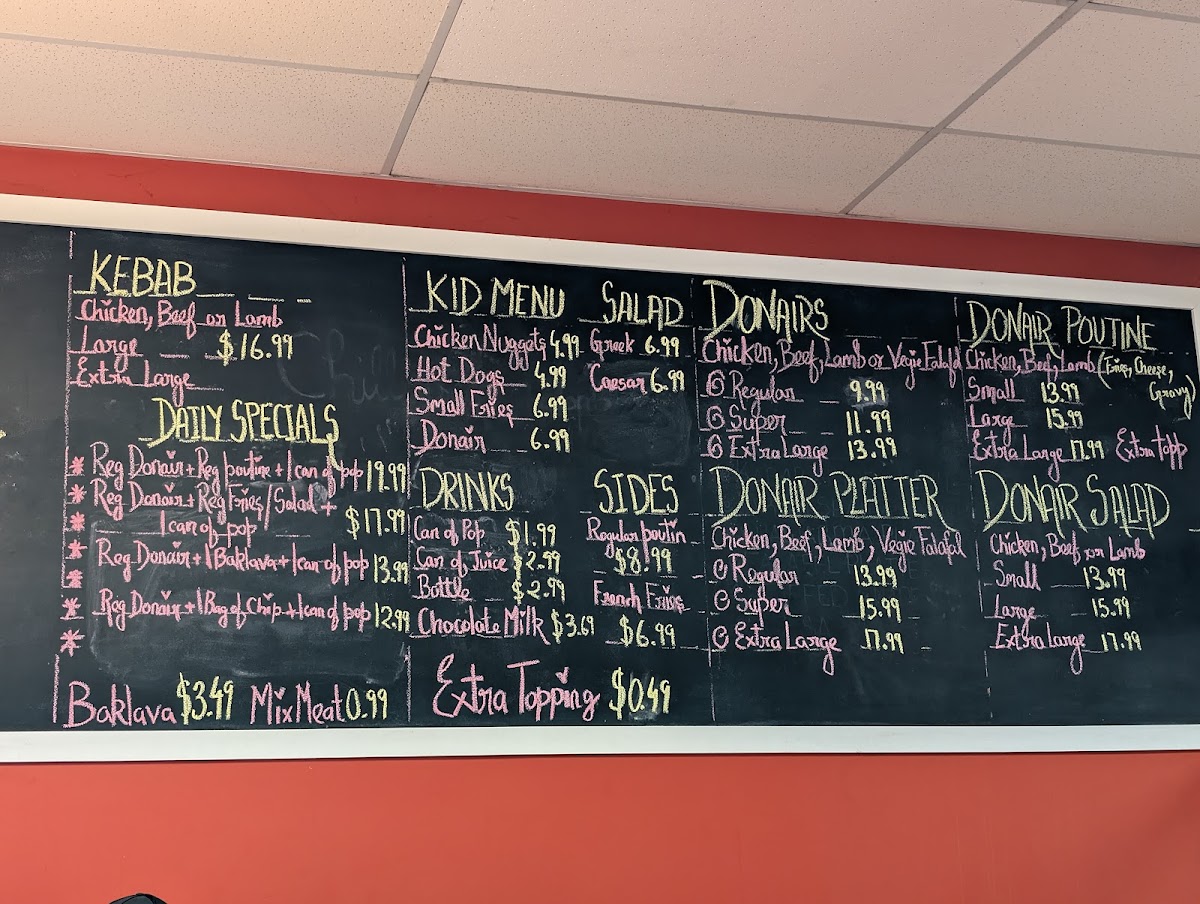 KEBAB
Chicken, Beef or Lamb
Large $16.99
Extra Large
DAILY SPECIALS
* Reg Donair + Reg poutine + 1 can of pop 19.99
* Reg Donair + Reg Fries / Salad +
* 1 can of pop $17.99
* Reg Donair + 1 Baklava + 1 can of pop 13.99
*
* Reg Donair + 1 Bag of Chip + 1 can of pop 12.99
*
Baklava $3.49 Mix Meat 0.99
KID MENU
Chicken Nuggets 4.99
Hot Dogs 4.99
Small Fries 6.99
Donair 6.99
SALAD
Greek 6.99
Caesar 6.99
DRINKS
Can of Pop $1.99
Can of Juice $2.99
Bottle $2.99
Chocolate Milk $3.69
SIDES
Regular poutin
$8.99
French Fries
$6.99
Extra Topping $0.49
DONAIRS
Chicken, Beef, Lamb or Vegie Falafal
Regular 9.99
Super 11.99
Extra Large 13.99
DONAIR PLATTER
Chicken, Beef, Lamb, Vegie Falafal
Regular 13.99
Super 15.99
Extra Large 17.99
DONAIR POUTINE
Chicken, Beef, Lamb (Fries, Cheese,
Gravy)
Small 13.99
Large 15.99
Extra Large 17.99 Extra topp
DONAIR SALAD
Chicken, Beef or Lamb
Small 13.99
Large 15.99
Extra Large 17.99